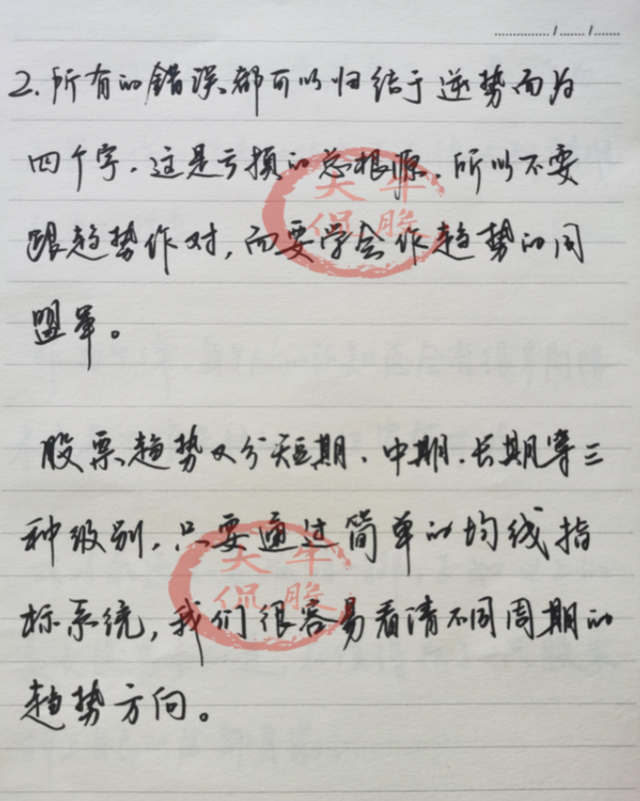 2.所有的错误都可以归结于逆势而为
四个字.这是亏损的总根源.所以不要
跟趋势作对,而要学会作趋势的同
盟军。
股票趋势又分短期、中期、长期等三
种级别,只要通过简单的均线指
标系统,我们很容易看清不同周期的
趋势方向。
天牛
侃股
天牛
侃股